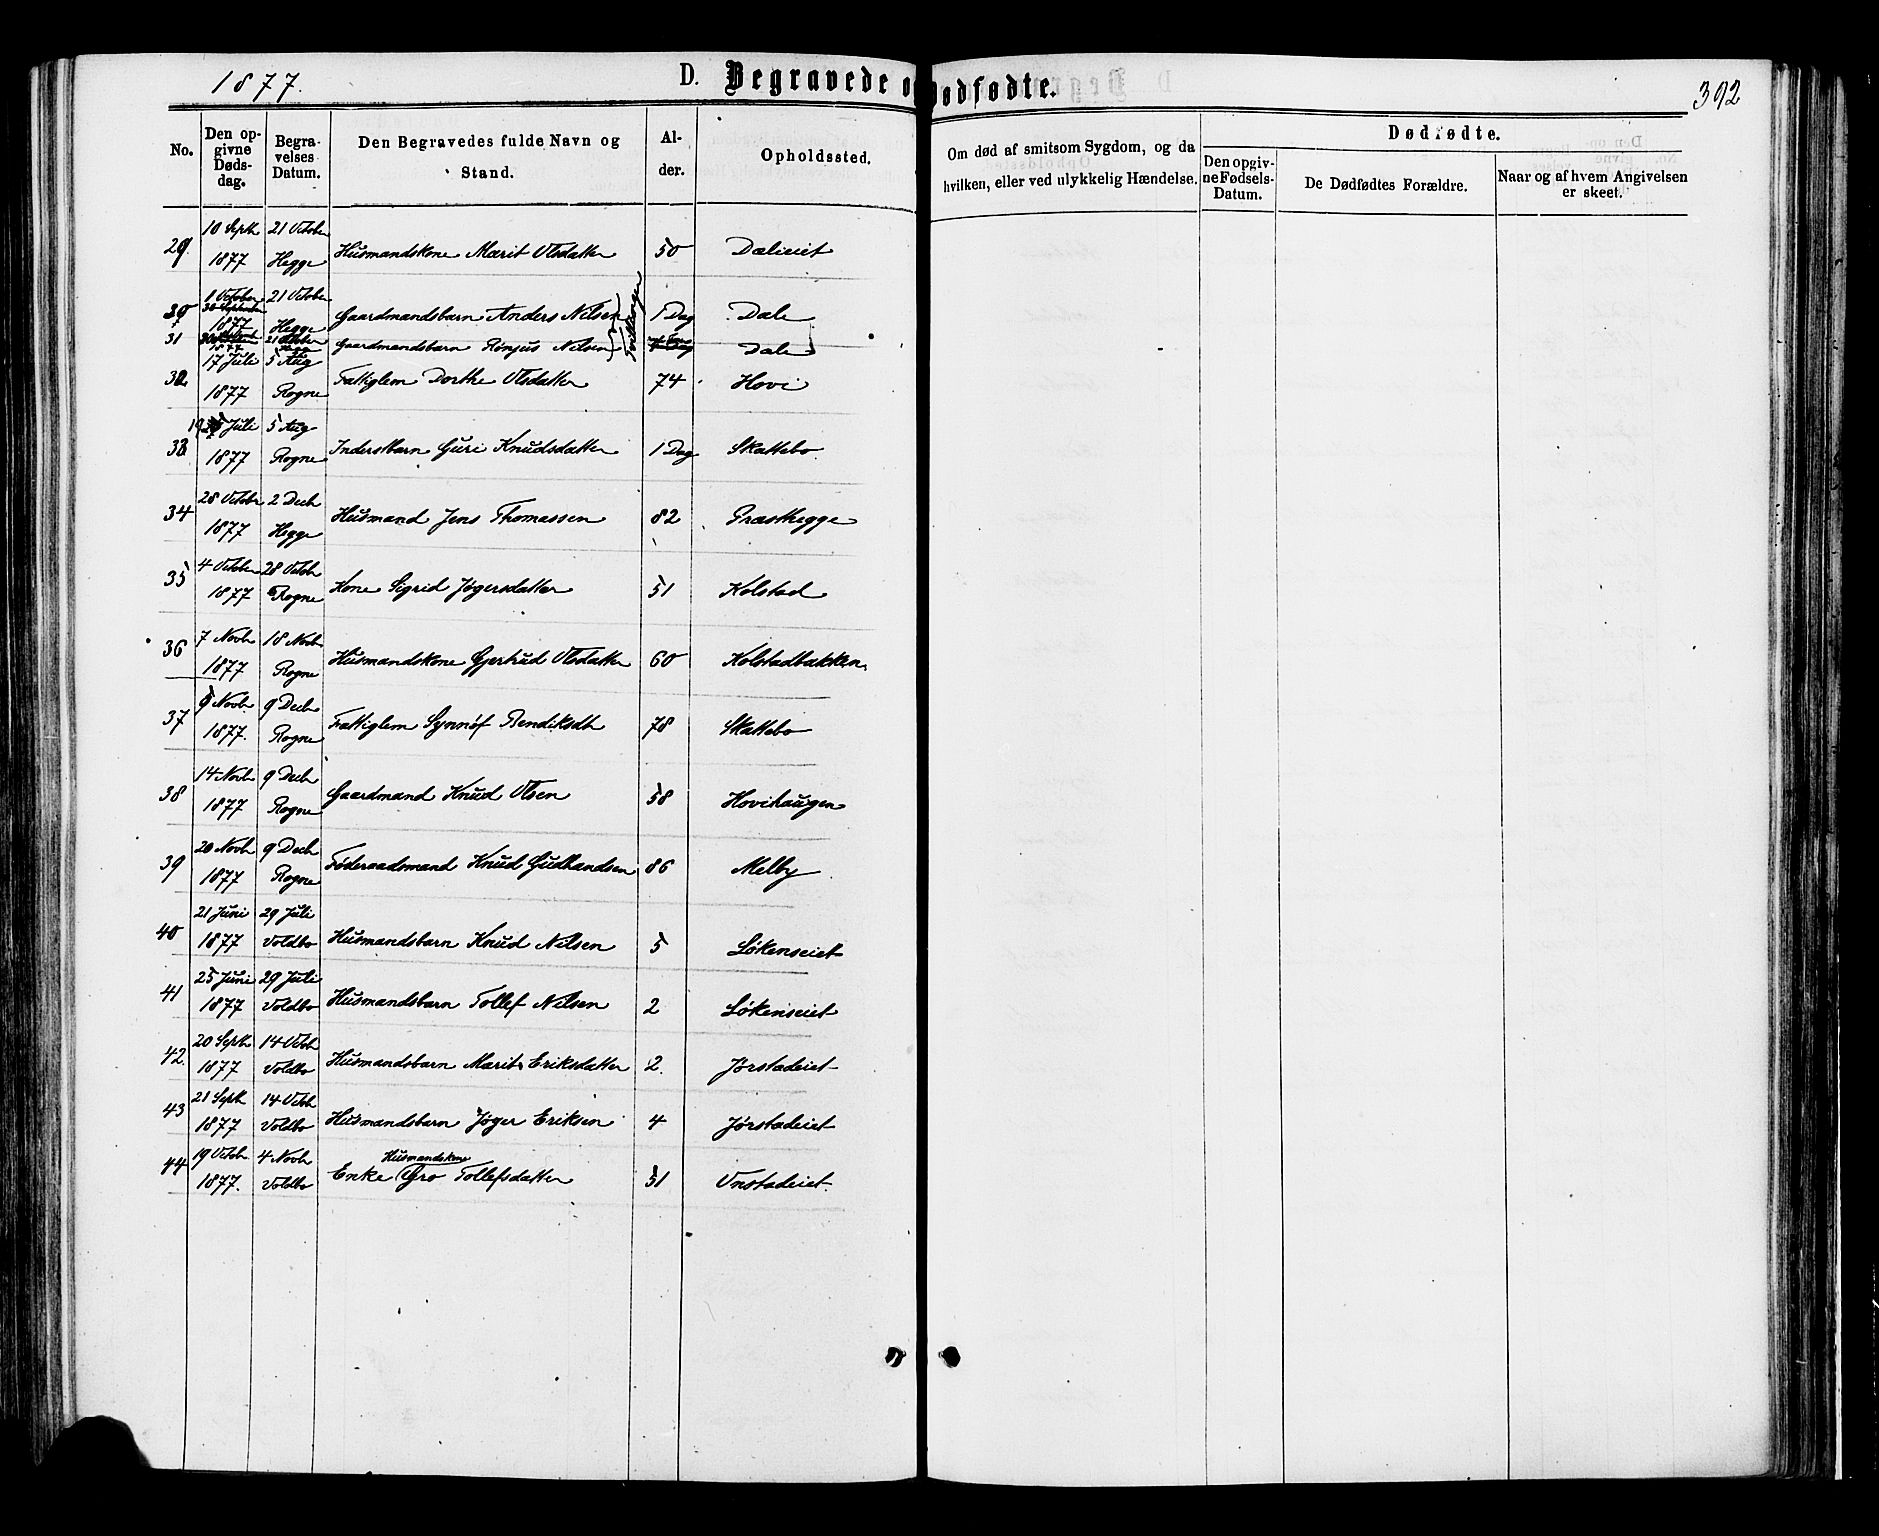 1877.
D. Begravede o
Dødfødte.
392
No.
Den op-
givne
Døds-
dag.
Begra-
velses
Datum.
Den Begravedes fulde Navn og
Stand.
Al-
der.
Opholdssted.
Om død af smitsom Sygdom, og da
hvilken, eller ved ulykkelig Hændelse.
Dødfødte.
Den opgiv-
ne Fødsels-
Datum.
De Dødfødtes Forældre.
Naar og af hvem Angivelsen
er skeet.
29. 10 Septh 1877 21 October Hegge Husmandskone Marit Olsdatter 50 Dalieiet
30 1 October 1877 21 October Hegge Gaardmandsbarn Anders Nilsen Tvillinger 1 Dag Dale
31 1877 21 October Gaardmandsbarn Nilsen Dale
32 17 Juli 1877 5 Aug Rogne Fattiglem Dorthe Olsdatter 74 Hovi
33 Juli 1877 5 Aug Rogne Inderstbarn Guri Knudsdatter 1 Dag Skattebo
34 28 Octobr 1877 2 Decb Hegge Husmand Jens Thomassen 82 Præsthegge
35 4 October 1877 28 Octobr Rogne Kone Sigrid Jøgersdatter 51 Kolstad
36 7 Novb 1877 18 Novb Rogne Husmandskone Gjertrud Olsdatter 60 Kolstadbakken
37 Novb 1877. 9 Decb Rogne Fattiglem Synnøf Bendiksdtr 78 Skattebo
38 14 Novb 1877 9 Decb Rogne Gaardmand Knud Olsen 58 Hovihaugen
39 20 Novb 1877 9 Decb Rogne Føderaadsmand Knud Gudbrandsen 86 Melby
40 21 Juni 1877 29 Juli Voldbo Husmandsbarn Knud Nilsen 5 Løkenseiet
41 25 Juni 1877 29 Juli Voldbo Husmandsbarn Tollef Nilsen 2 Løkenseiet
42. 20 Septb 1877 14 Octb Voldbo Husmandsbarn Marit Eriksdatter 2. Jørstadeiet
43 21 Septb 1877 14 Octb Voldbo Husmandsbarn Jøger Eriksen 4 Jørstadeiet
44 19 Octobr 1877. 4 Novb Voldbo Enke Husmandskone Gro Tollefsdatter 51 Onstadeiet.